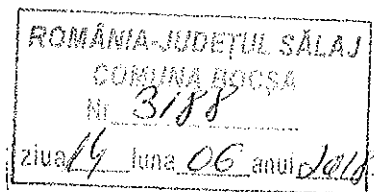 ROMÂNIA-JUDEŢUL SĂLAJ
COMUNA BOCŞA
Nr 3188
ziua 14 luna 06 anul 2018